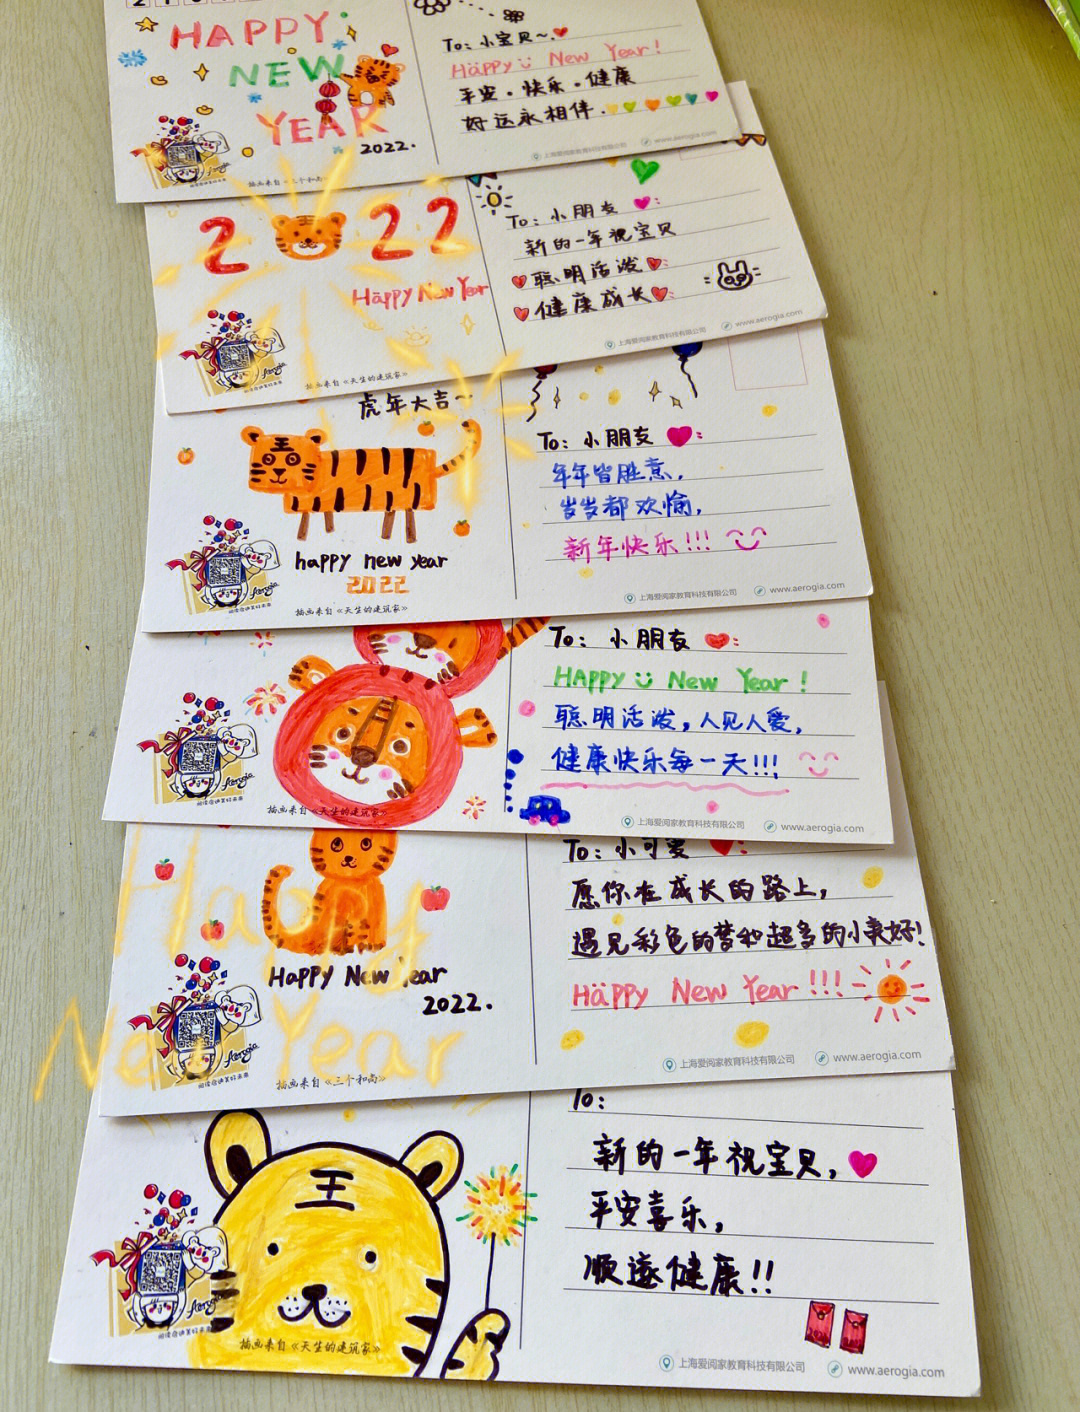 HAPPY
NEW
YEAR
2022.
To: 小宝贝~
Happy New Year!
平安·快乐·健康
好运永相伴.
上海爱阅家教育科技有限公司 www.aerogia.com
2022
Happy New Year
Aerogia
插画来自《天生的建筑家》
To: 小朋友:
新的一年祝宝贝
聪明活泼
健康成长
上海爱阅家教育科技有限公司 www.aerogia.com
虎年大吉~
王
happy new year
2022
Aerogia
插画来自《天生的建筑家》
To: 小朋友:
年年皆胜意,
岁岁都欢愉,
新年快乐!!!
上海爱阅家教育科技有限公司 www.aerogia.com
Aerogia
插画来自《天生的建筑家》
To: 小朋友:
HAPPY New Year!
聪明活泼,人见人爱,
健康快乐每一天!!!
上海爱阅家教育科技有限公司 www.aerogia.com
Happy
New Year
Happy New Year
2022.
Aerogia
插画来自《三个和尚》
To: 小可爱:
愿你在成长的路上,
遇见彩色的梦和超多的小美好!
Happy New Year!!!
上海爱阅家教育科技有限公司 www.aerogia.com
王
Aerogia
插画来自《天生的建筑家》
To:
新的一年祝宝贝,
平安喜乐,
顺遂健康!!
上海爱阅家教育科技有限公司 www.aerogia.com